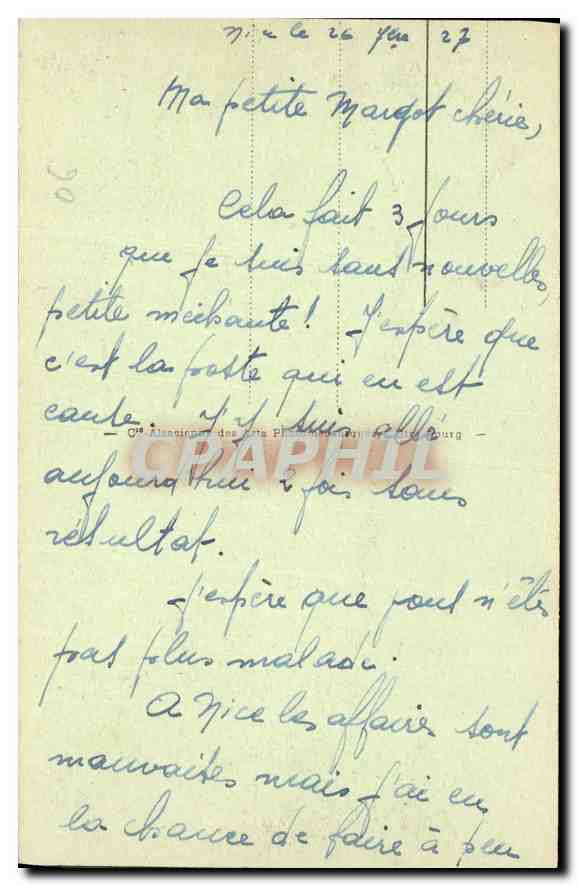 le 26 27
Ma petite Margot chérie,
06
Cela fait 3 jours
que je suis sans nouvelles,
petite méchante! J'espère que
c'est la poste qui en est
cause. J'y suis allé
— Cie Alsacienne des Arts Photomécaniques, Strasbourg —
CPAPHIL
aujourd'hui 2 fois sans
résultat.
J'espère que vous n'êtes
pas plus malade.
A Nice les affaires sont
mauvaises mais j'ai eu
la chance de faire à peu